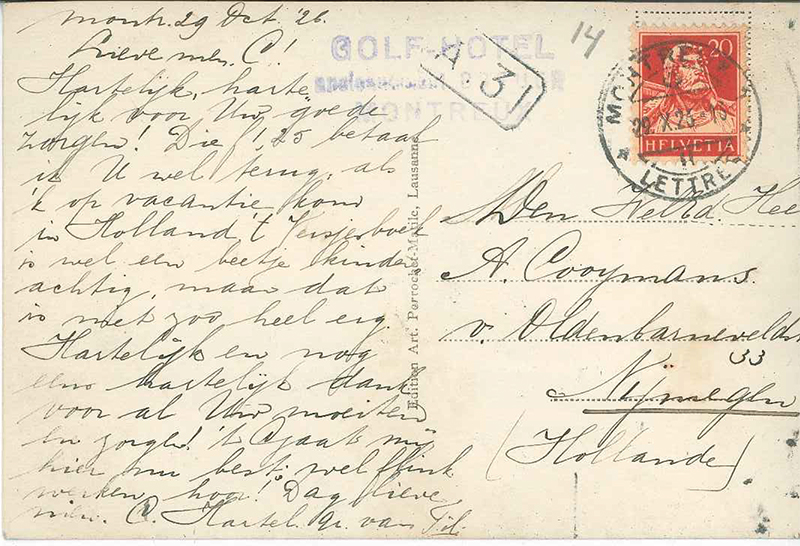 Montr. 29 Oct. '26.
Lieve men. C!
Hartelijk, harte
lijk voor Uw goede
zorgen! Die f 1,25 betaal
ik U wel terug, als
'k op vacantie kom
in Holland, 't Versjesboek
is wel een beetje kinder
achtig, maar dat
is niet zoo heel erg.
Hartelijk en nog
eens hartelijk dank
voor al Uw moeiten
en zorgen! 't Gaat mij
hier nu best, wel flink
werken, hoor! Dag lieve
men. C. Hartel. gr. van
GOLF-HOTEL
MONTREUX
A 3
14
Edition Art. Perrochet-Matile, Lausanne
20
HELVETIA
MONTREUX
29. X. 26
LETTRES
Den Weled. Hee
A. Cooymans.
v. Oldenbarneveldt
33
Nijmegen
(Hollande)